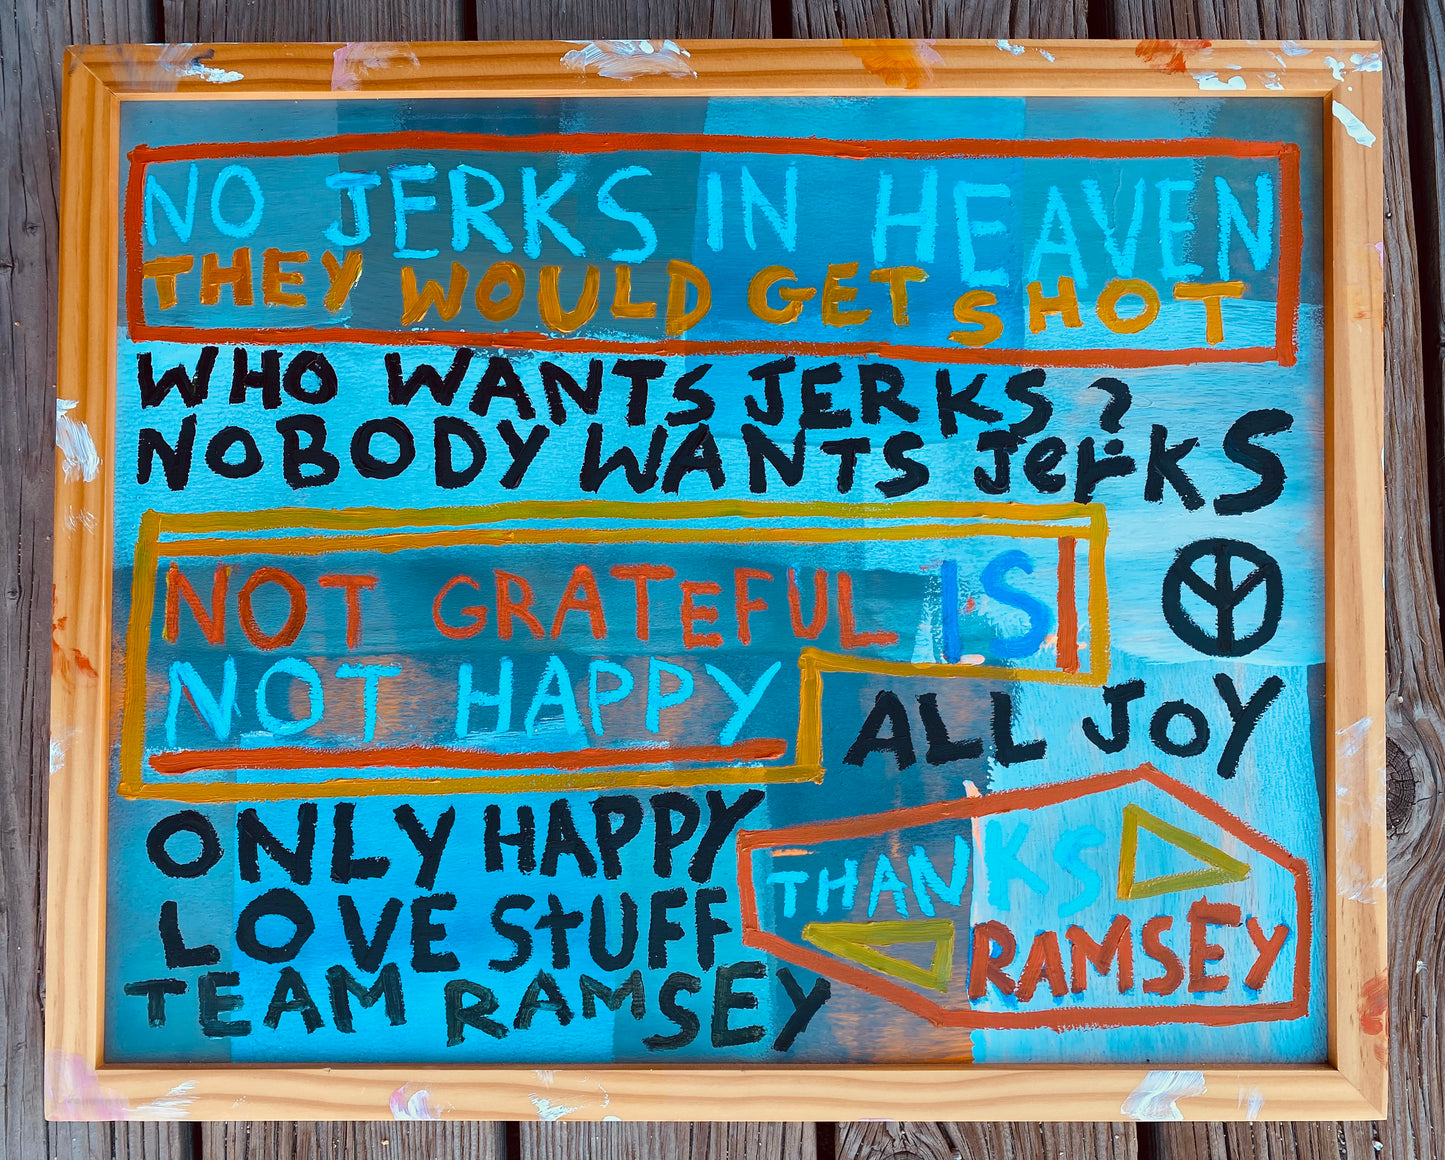 NO JERKS IN HEAVEN
THEY WOULD GET SHOT
WHO WANTS JERKS?
NOBODY WANTS JerKS
NOT GRATeFUL IS
NOT HAPPY
ALL JOY
ONLY HAPPY
LOVE STUFF
TEAM RAMSEY
THANKS
RAMSEY